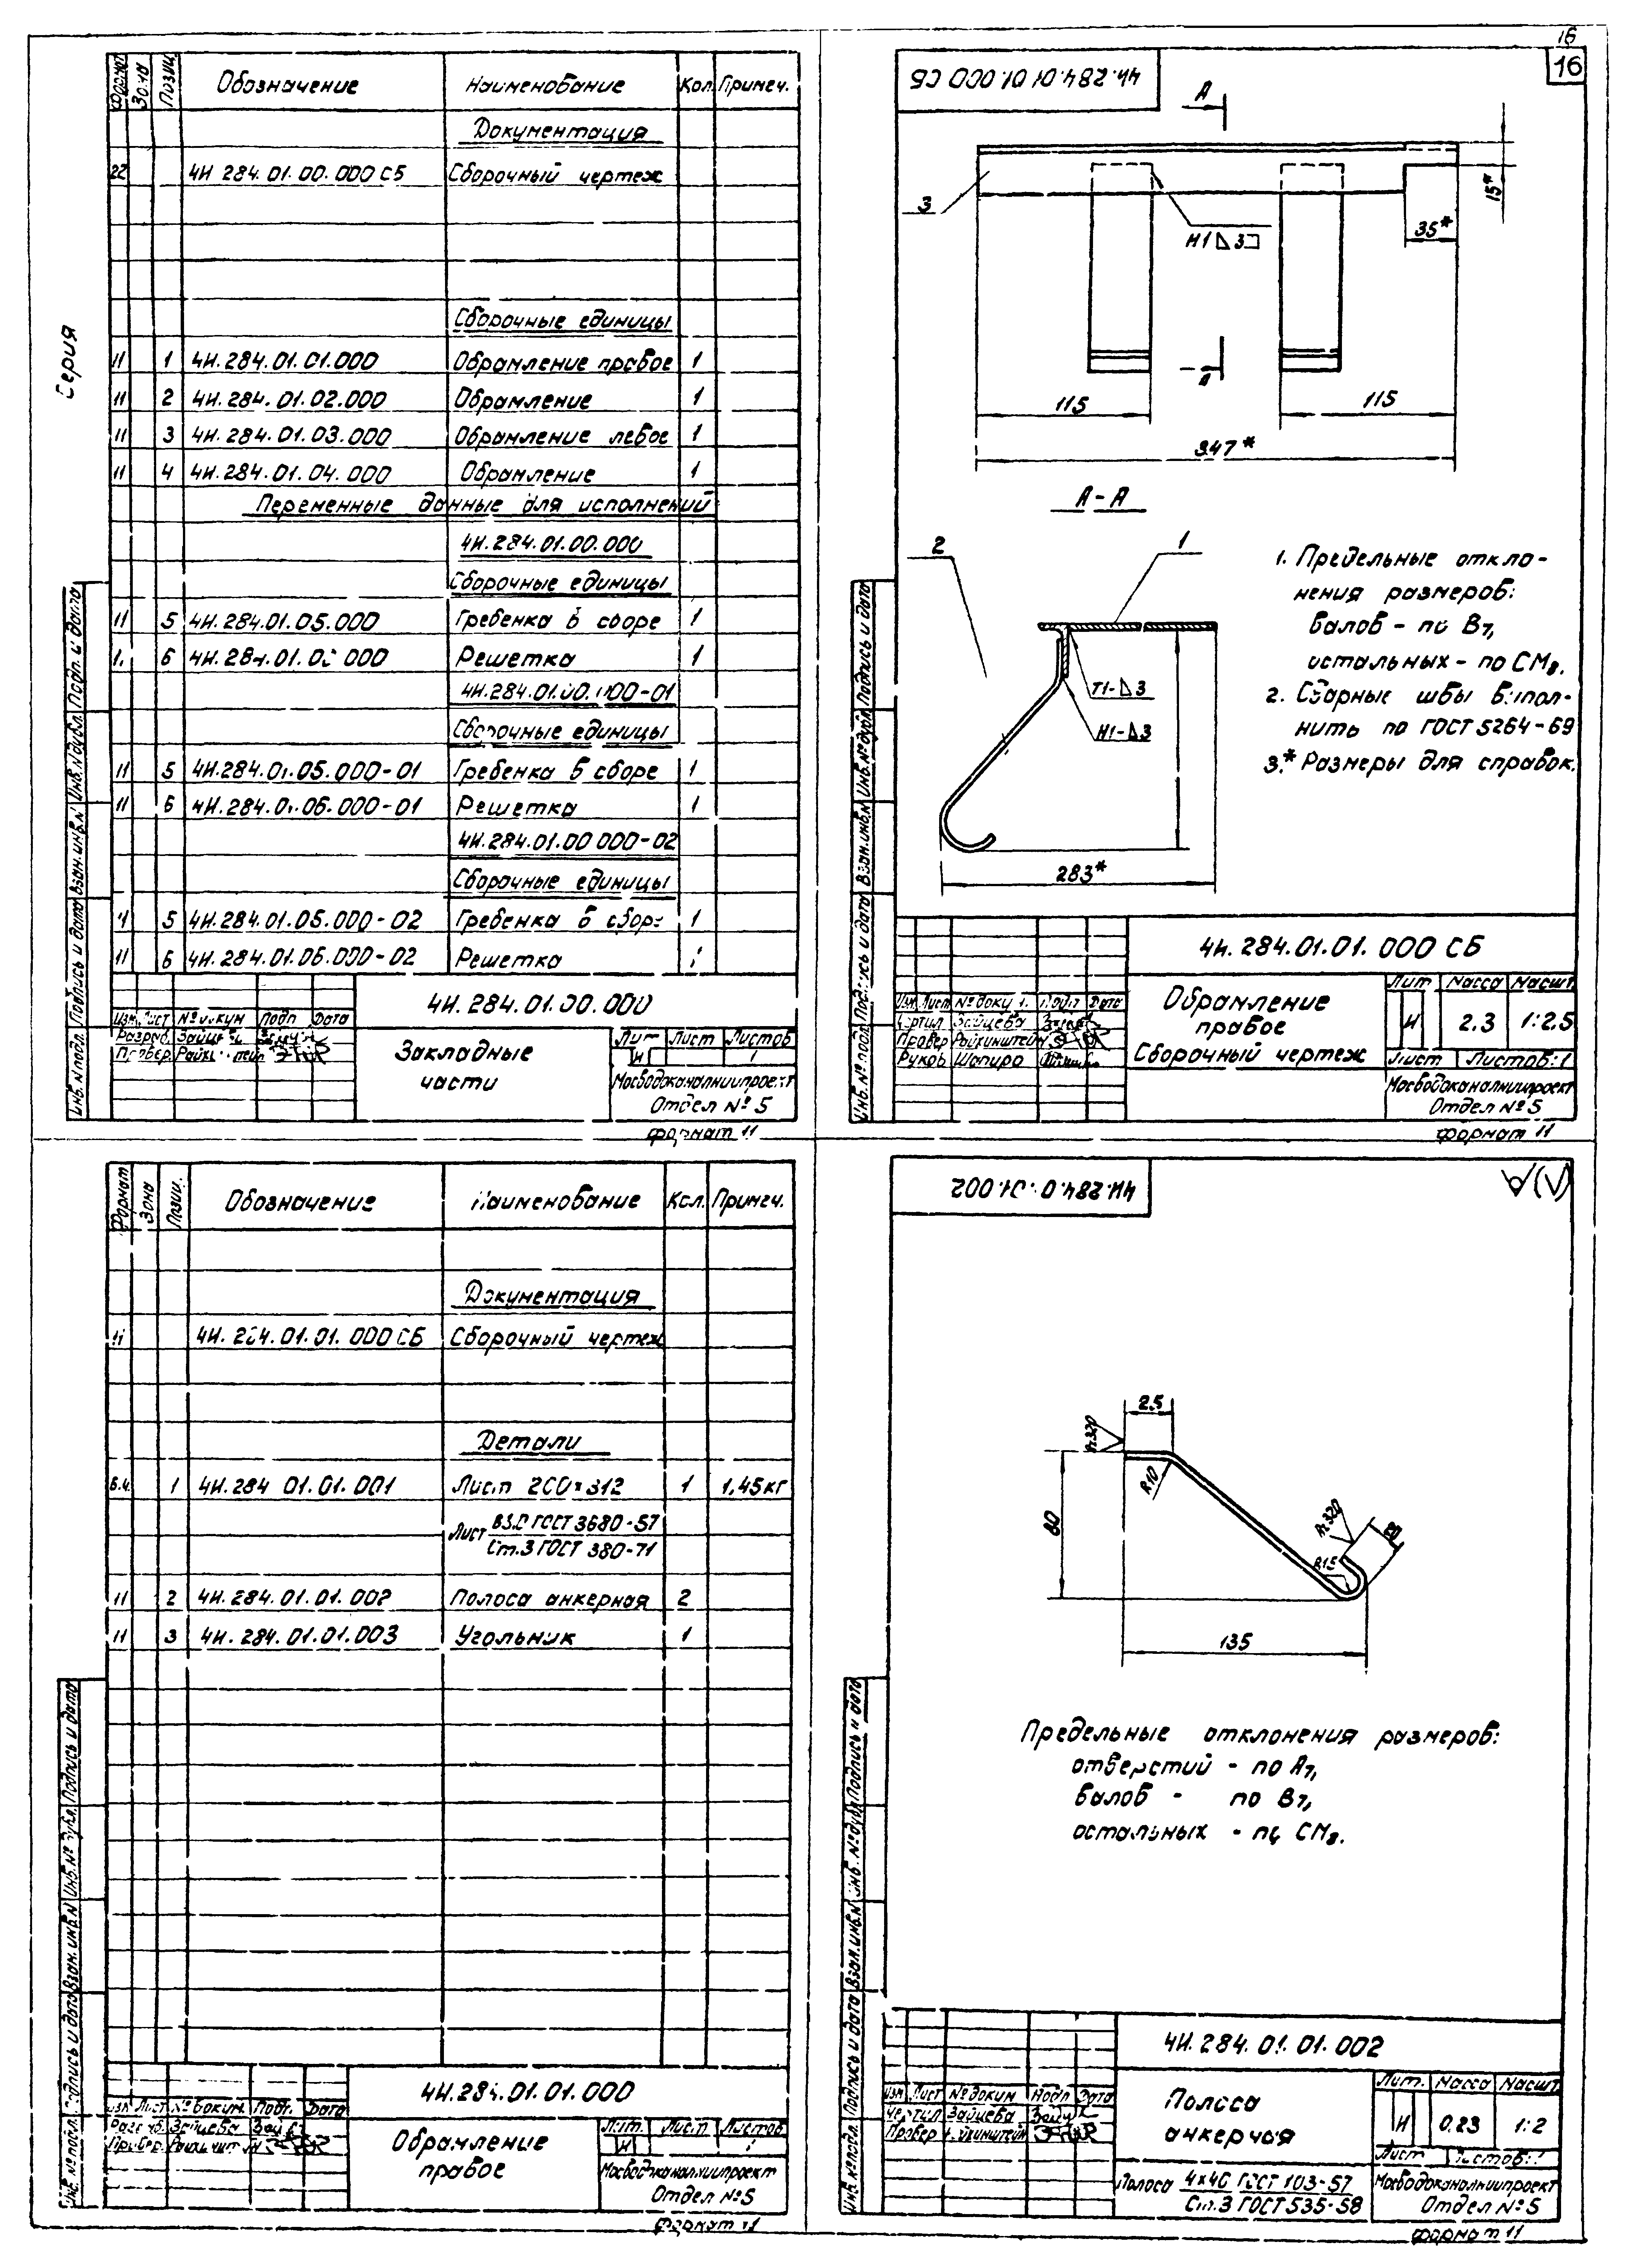 16
16
Серия
Формат Зона Позиц. Обозначение Наименование Кол. Примеч.
Документация
22 4И 284.01.00.000 СБ Сборочный чертеж
Сборочные единицы
11 1 4И.284.01.01.000 Обрамление правое 1
11 2 4И.284.01.02.000 Обрамление 1
11 3 4И.284.01.03.000 Обрамление левое 1
11 4 4И.284.01.04.000 Обрамление 1
Переменные данные для исполнений
4И.284.01.00.000
Сборочные единицы
11 5 4И.284.01.05.000 Гребенка в сборе 1
6 4И.284.01.06.000 Решетка 1
4И.284.01.00.000-01
Сборочные единицы
11 5 4И.284.01.05.000-01 Гребенка в сборе 1
11 6 4И.284.01.06.000-01 Решетка 1
4И.284.01.00 000-02
Сборочные единицы
5 4И.284.01.05.000-02 Гребенка в сборе 1
11 6 4И.284.01.06.000-02 Решетка
Инв.№подл. Подпись и дата Взам.инв.№ Инв.№дубл. Подп. и дата
4И.284.01.00.000
Изм. Лист №докум Подп Дата
Разраб. Зайцева
Провер. Райхинштейн
Закладные
части
Лит Лист Листов
И 1
Мосводоканалниипроект
Отдел №5
формат 11
4И.284.01.01.000 СБ
А
3
Н1 3
15*
35*
А
115
115
347*
А-А
2
1
Т1-3
Н1-3
283*
1. Предельные откло-
нения размеров:
валов - по В7,
остальных - по СМ8.
2. Сварные швы выпол-
нить по ГОСТ 5264-69
3.* Размеры для справок.
Инв.№подл. Подпись и дата Взам.инв.№ Инв.№дубл. Подпись и дата
4И.284.01.01.000 СБ
Изм. Лист №докум. Подп Дата
Чертил Зайцева
Провер Райхинштейн
Руков Шапиро
Обрамление
правое
Сборочный чертеж
Лит Масса Масшт
И 2.3 1:2.5
Лист Листов: 1
Мосводоканалниипроект
Отдел №5
формат 11
Формат Зона Позиц. Обозначение Наименование Кол. Примеч.
Документация
11 4И.284.01.01.000 СБ Сборочный чертеж
Детали
б.ч. 1 4И.284 01.01.001 Лист 200×312 1 1,45кг
Лист В3.0 ГОСТ 3680-57
Ст.3 ГОСТ 380-71
11 2 4И.284.01.01.002 Полоса анкерная 2
11 3 4И.284.01.01.003 Угольник 1
Инв.№подл. Подпись и дата Взам.инв.№ Инв.№дубл. Подпись и дата
4И.284.01.01.000
Изм. Лист №докум. Подп. Дата
Разраб. Зайцева
Провер. Райхинштейн
Обрамление
правое
Лит. Лист Листов
И
Мосводоканалниипроект
Отдел №5
формат 11
4И.284.01.01.002
(√)
25
Rz320
R10
80
Rz320
R15
135
Предельные отклонения размеров:
отверстий - по А7,
валов - по В7,
остальных - по СМ8.
Инв.№подл. Подпись и дата Взам.инв.№ Инв.№дубл. Подпись и дата
4И.284.01.01.002
Изм Лист №докум Подп Дата
Чертил Зайцева
Провер Райхинштейн
Полоса
анкерная
Лит. Масса Масшт
И 0.23 1:2
Лист Листов: 1
Полоса 4×40 ГОСТ 103-57
Ст.3 ГОСТ 535-58
Мосводоканалниипроект
Отдел №5
формат 11